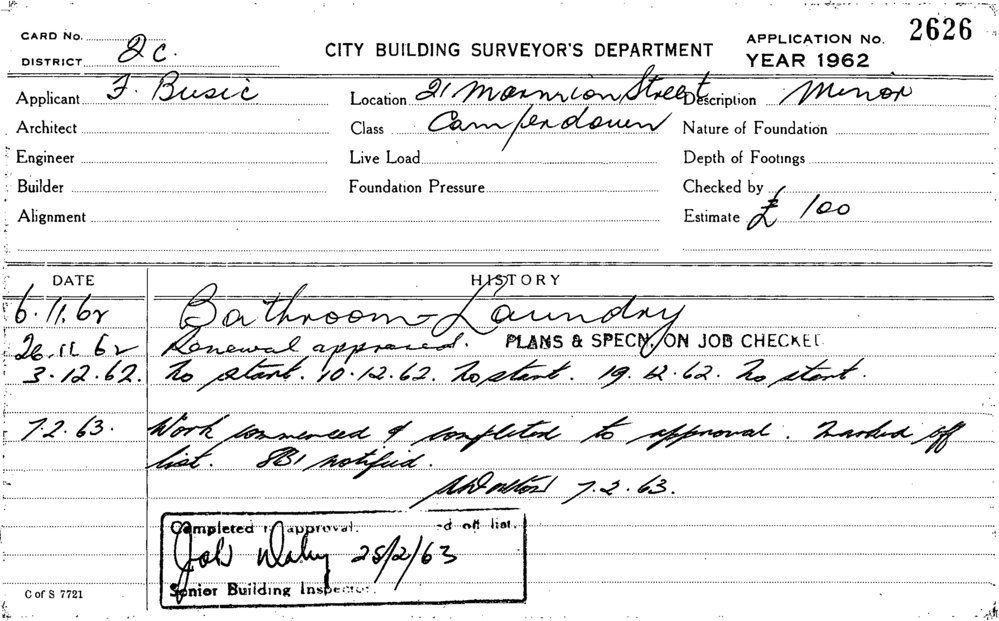 CARD No.
DISTRICT 2c.
CITY BUILDING SURVEYOR'S DEPARTMENT
APPLICATION No. 2626
YEAR 1962
Applicant F. Busic Location 21 Marmion Street Description Minor
Architect Class Camperdown Nature of Foundation
Engineer Live Load Depth of Footings
Builder Foundation Pressure Checked by
Alignment Estimate £ 100
DATE HISTORY
6.11.62 Bathroom - Laundry
26.11.62 Renewal approved. PLANS & SPECN. ON JOB CHECKED
3.12.62. No start. 10.12.62. No start. 19.12.62. No start.
7.2.63. Work commenced & completed to approval. Marked off
list. SBI notified.
7.2.63.
Completed approval. off list.
25/2/63
Senior Building Inspector.
C of S 7721